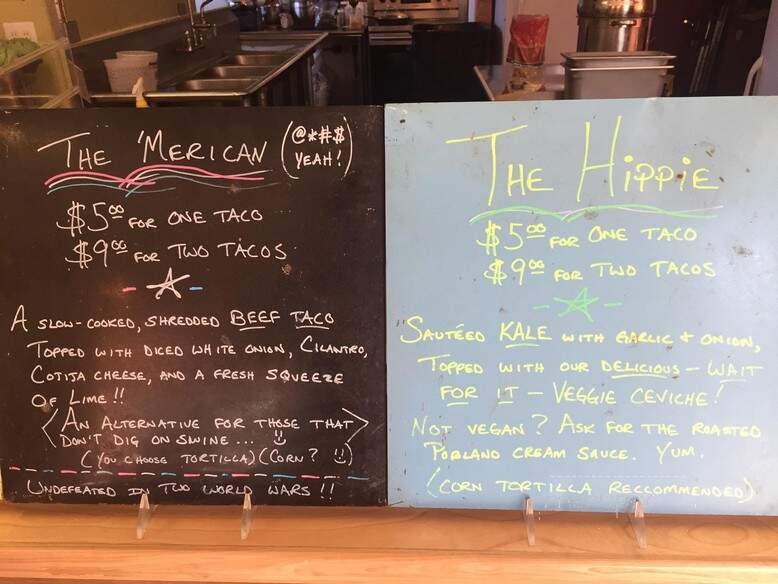 THE 'MERICAN (@*#$ YEAH!)
$5.00 FOR ONE TACO
$9.00 FOR TWO TACOS
A SLOW-COOKED, SHREDDED BEEF TACO
TOPPED WITH DICED WHITE ONION, CILANTRO,
COTIJA CHEESE, AND A FRESH SQUEEZE
OF LIME!!
<AN ALTERNATIVE FOR THOSE THAT
DON'T DIG ON SWINE... >
(YOU CHOOSE TORTILLA) (CORN? )
UNDEFEATED IN TWO WORLD WARS!!
THE HIPPIE
$5.00 FOR ONE TACO
$9.00 FOR TWO TACOS
SAUTÉED KALE WITH GARLIC & ONION,
TOPPED WITH OUR DELICIOUS - WAIT
FOR IT - VEGGIE CEVICHE!
NOT VEGAN? ASK FOR THE ROASTED
POBLANO CREAM SAUCE. YUM.
(CORN TORTILLA RECCOMMENDED)